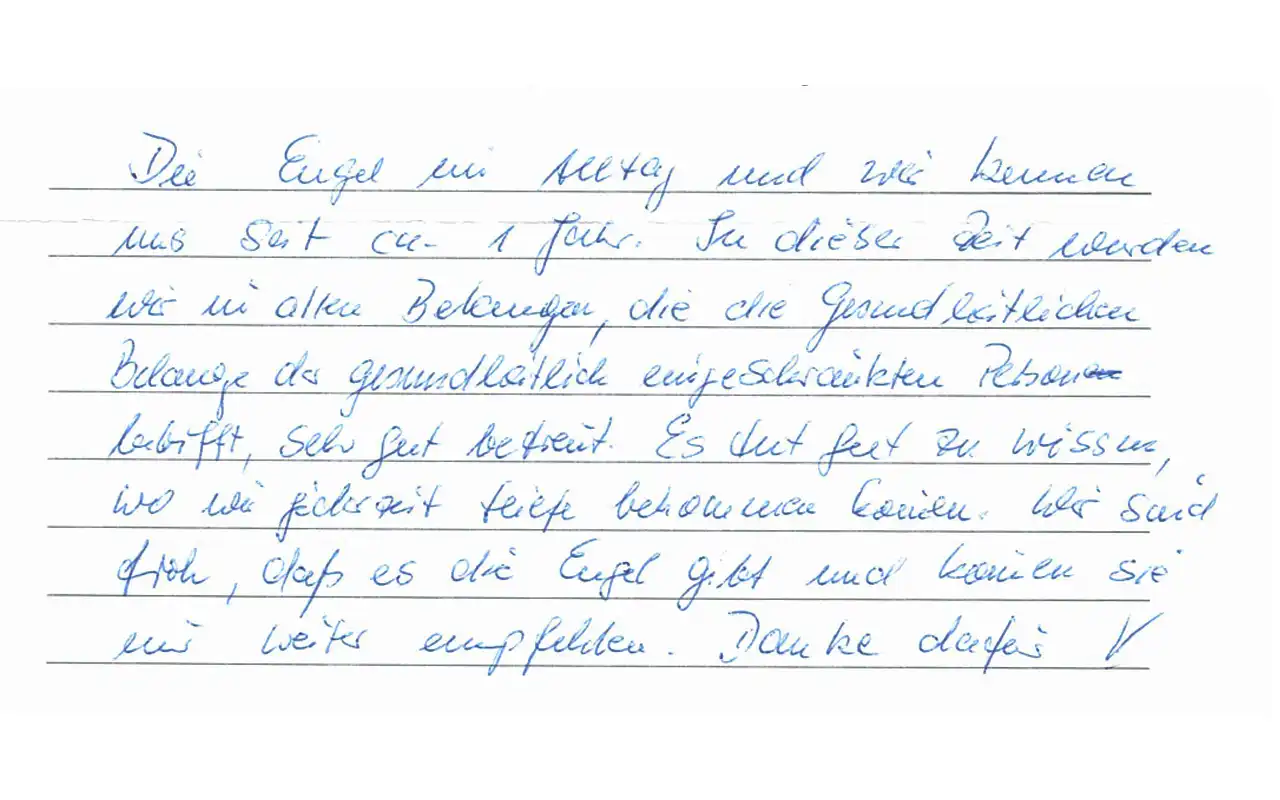 Die Engel im Alltag und wir kennen
uns seit ca. 1 Jahr. In dieser Zeit wurden
wir in allen Belangen, die die Gesundheitlichen
Belange der gesundheitlich eingeschränkten Person
betrifft, sehr gut betreut. Es tut gut zu wissen,
wo wir jederzeit Hilfe bekommen können. Wir sind
froh, daß es die Engel gibt und können sie
nur weiter empfehlen. Danke dafür !